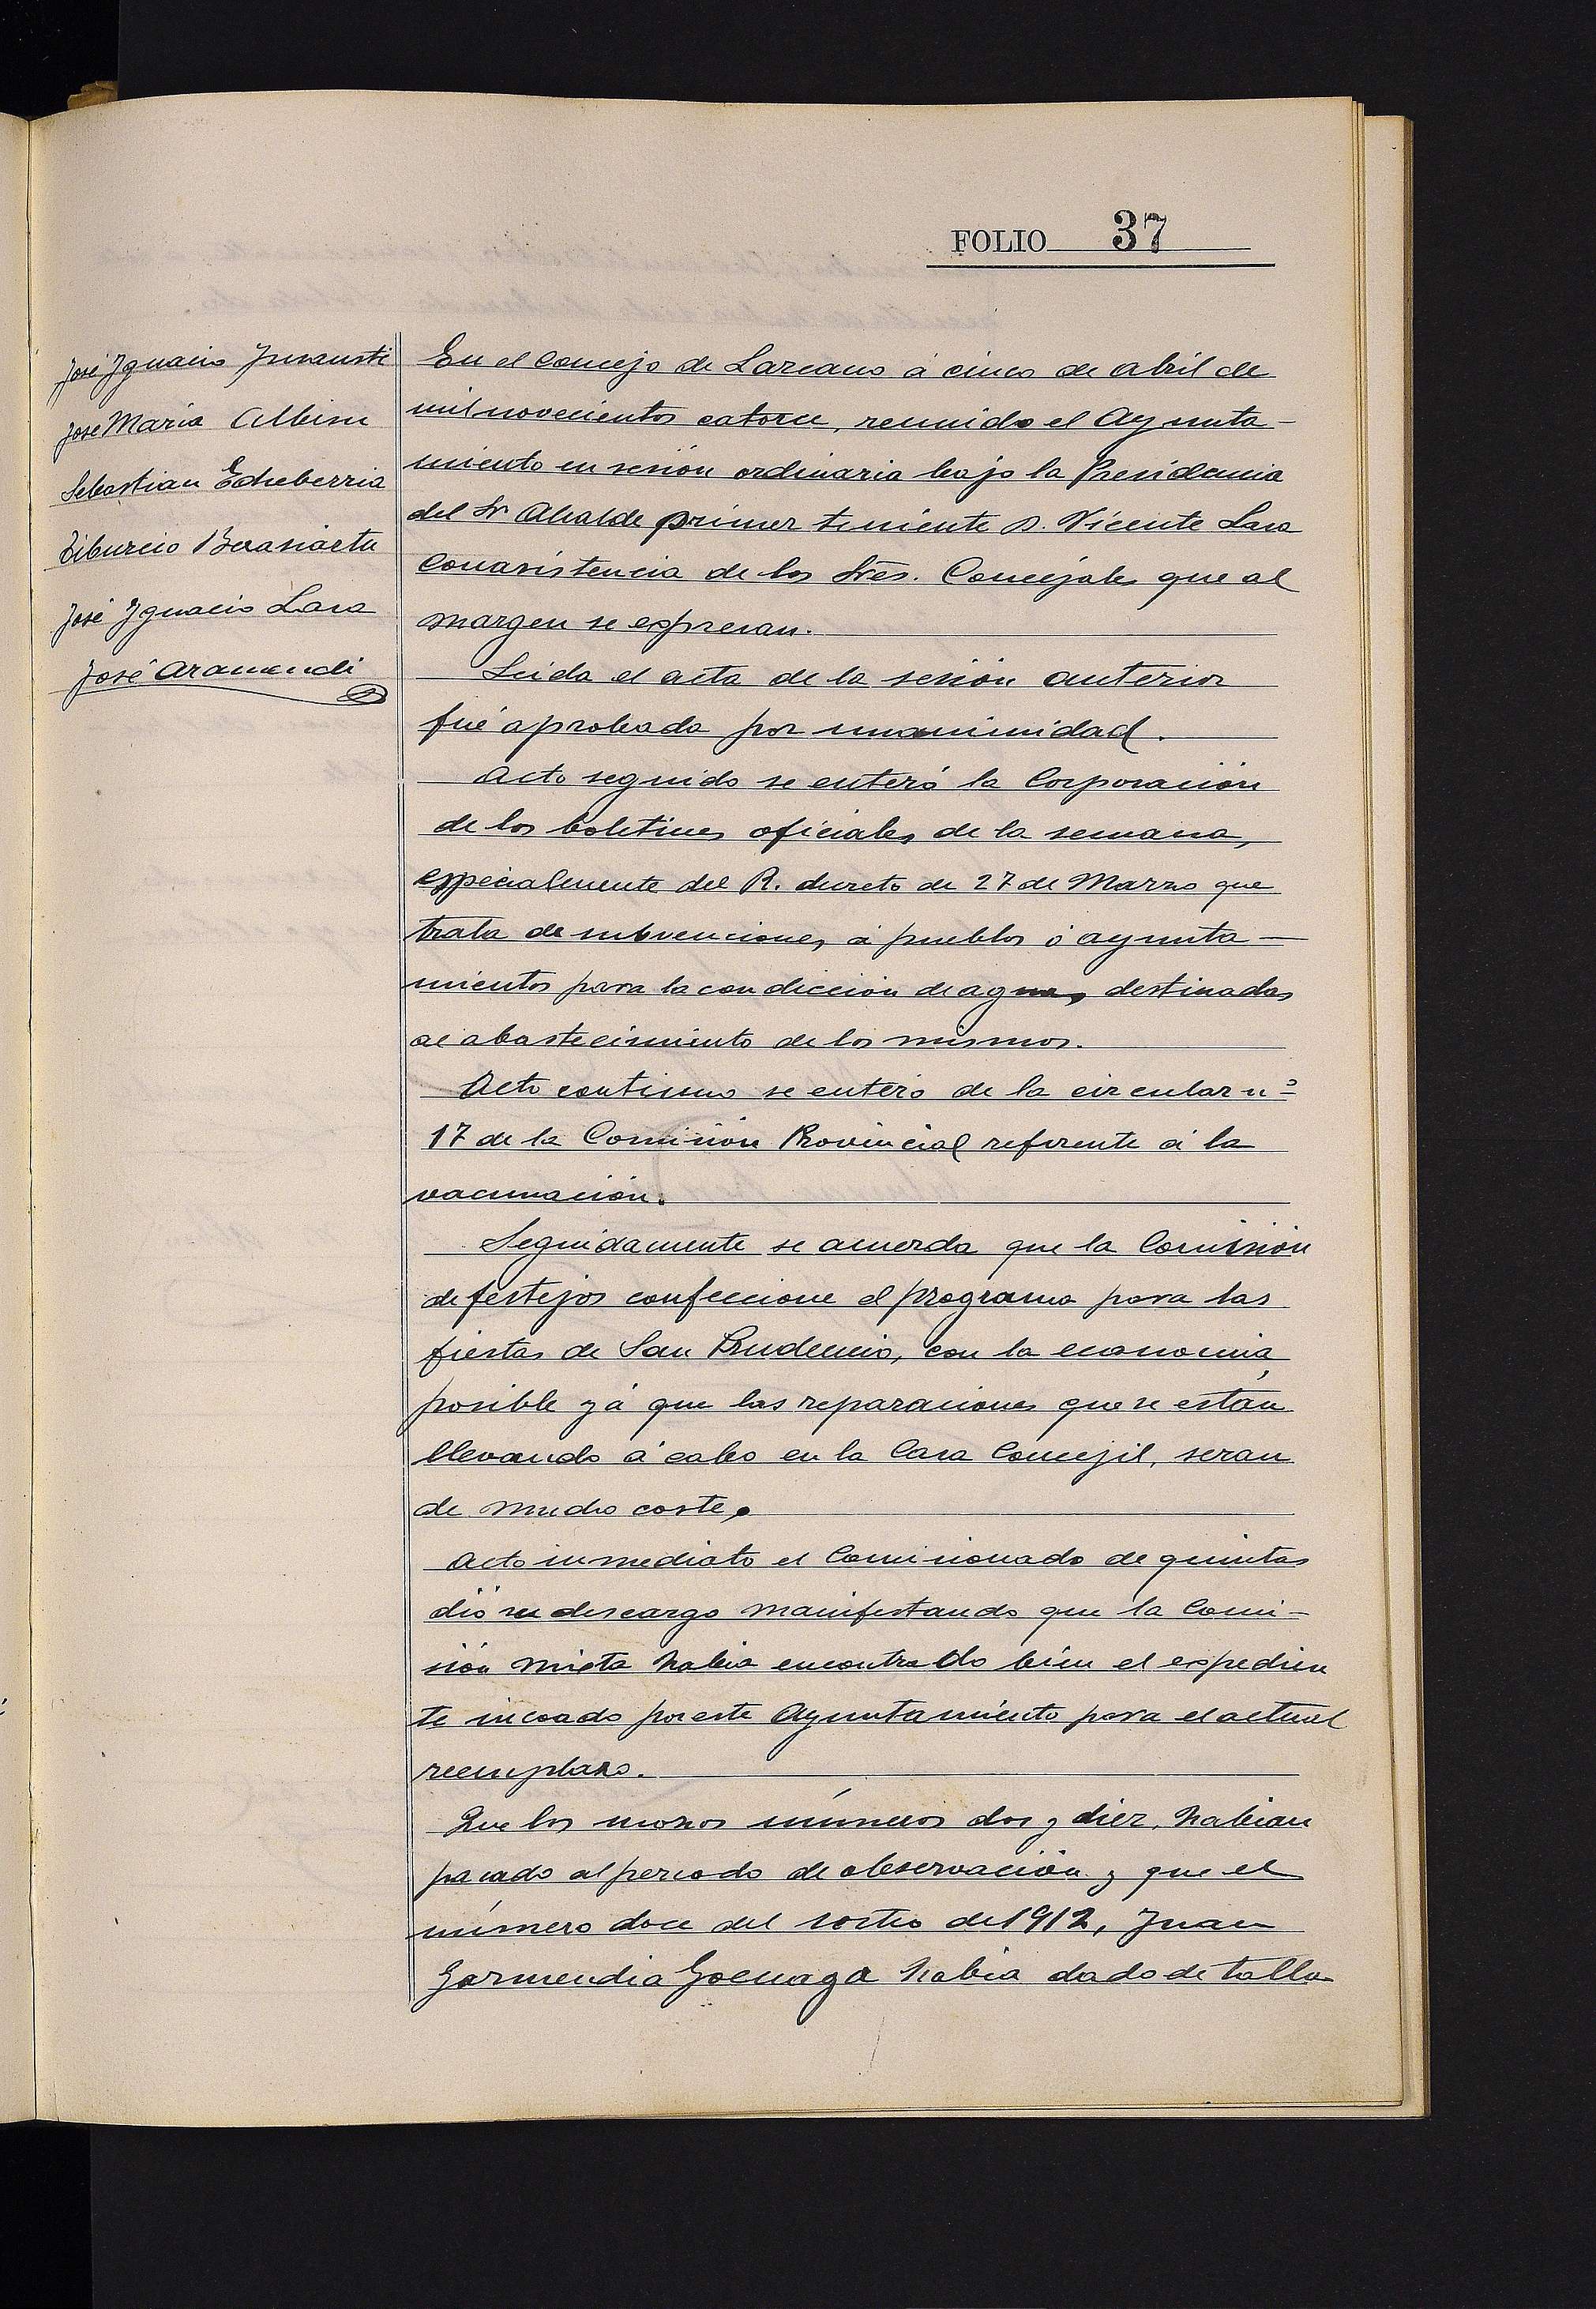 FOLIO 37
José Ignacio Insausti
José Maria Albisu
Sebastian Echeberria
Tiburcio Berasiartu
José Ignacio Lasa
José Aramendi
En el Concejo de Lazcano á cinco de abril de
mil novecientos catorce, reunido el Ayunta-
miento en sesión ordinaria bajo la Presidencia
del Sr Alcalde primer teniente D. Vicente Lasa
Con asistencia de los Sres. Concejales que al
margen se expresan.
Leida el acta de la sesión anterior
fué aprobada por unanimidad.
Acto seguido se enteró la Corporación
de los boletines oficiales de la semana,
especialmente del R. decreto de 27 de Marzo que
trata de subvenciones á pueblos ó ayunta-
mientos para la condicción de aguas, destinadas
al abastecimiento de los mismos.
Acto continuo se enteró de la circular nº
17 de la Comisión Provincial referente á la
vacunación.
Seguidamente se acuerda que la Comisión
de festejos confeccione el programa para las
fiestas de San Prudencio, con la economia
posible yá que las reparaciones que se están
llevando á cabo en la Casa Concejil, seran
de mucho coste.
Acto inmediato el Comisionado de quintas
dió su descargo manifestando que la Comi-
sión mixta habia encontrado bien el expedien
te incoado por este Ayuntamiento para el actual
reemplazo.
Que los mozos números dos y diez, habian
pasado al periodo de observación y que el
número doce del sorteo de 1912, Juan
Garmendia Goenaga habia dado de talla